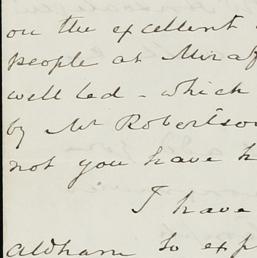 on the excellent
people at Miraf
well led - which
by Mr Robertso
not you have h
I have
Aldham to exp